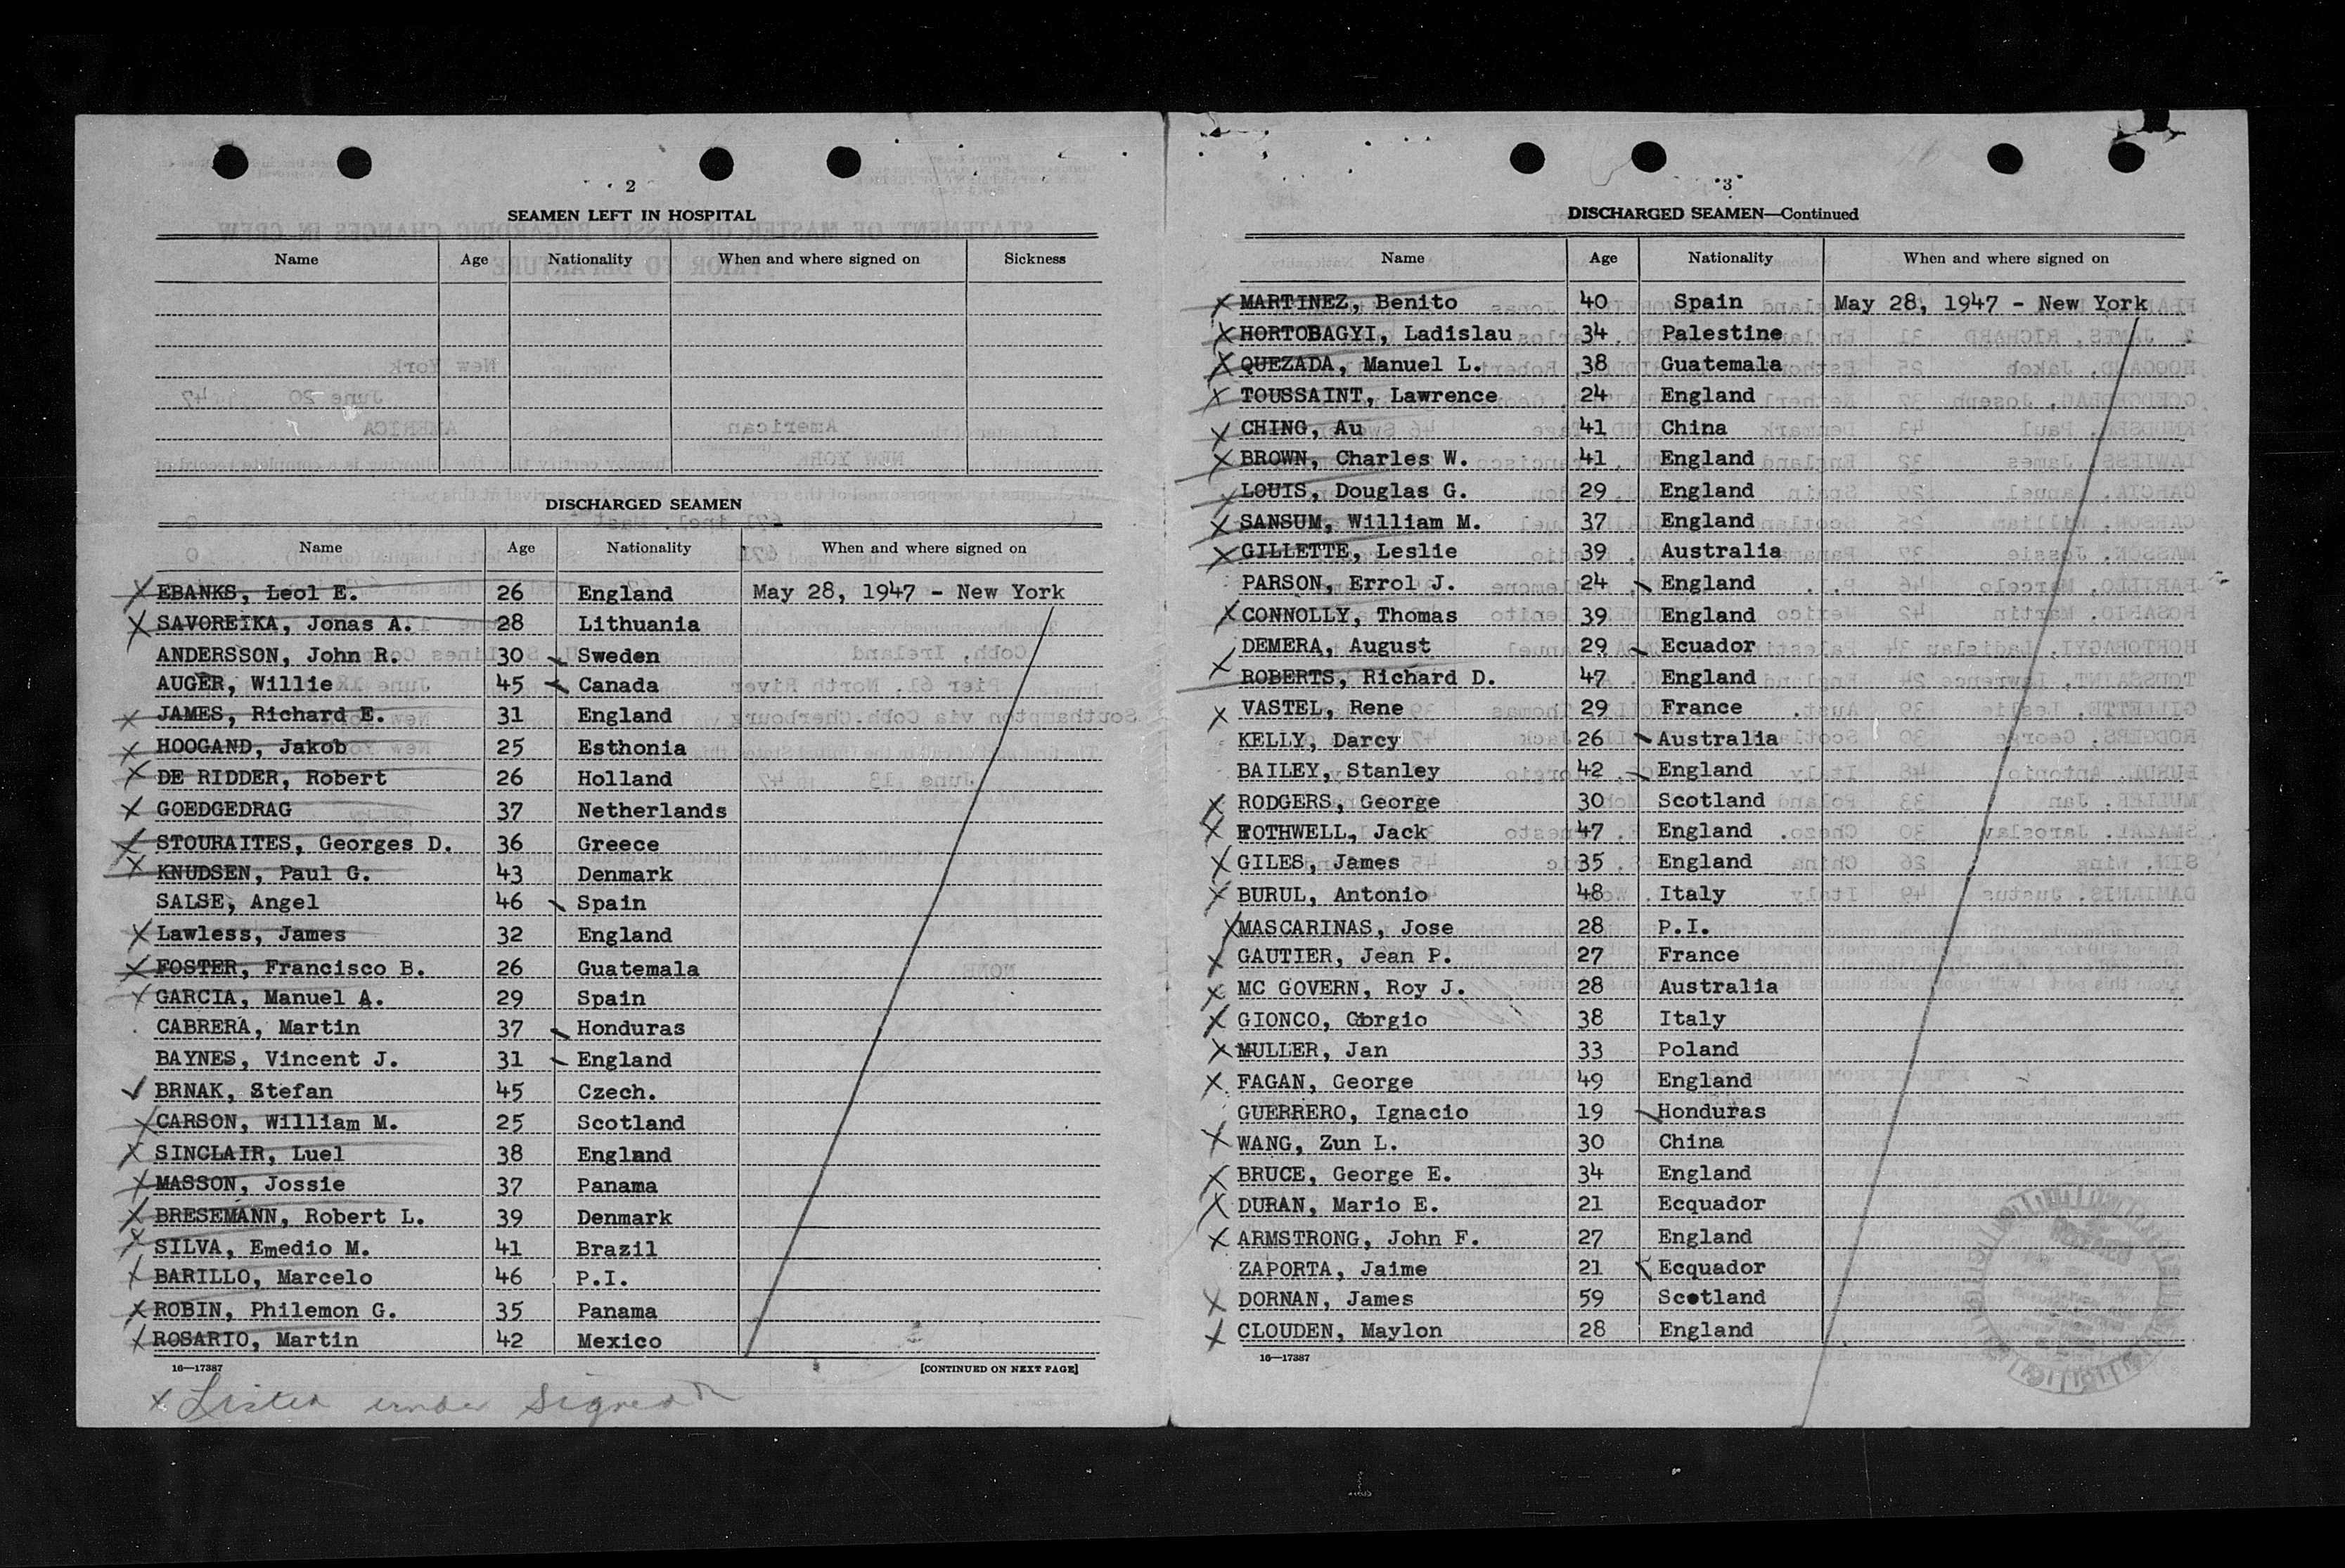 2
SEAMEN LEFT IN HOSPITAL
Name Age Nationality When and where signed on Sickness
DISCHARGED SEAMEN
Name Age Nationality When and where signed on
X EBANKS, Leol E. 26 England May 28, 1947 - New York
X SAVOREIKA, Jonas A. 28 Lithuania
ANDERSSON, John R. 30 Sweden
AUGER, Willie 45 Canada
X JAMES, Richard E. 31 England
X HOOGAND, Jakob 25 Esthonia
X DE RIDDER, Robert 26 Holland
X GOEDGEDRAG 37 Netherlands
X STOURAITES, Georges D. 36 Greece
X KNUDSEN, Paul G. 43 Denmark
SALSE, Angel 46 Spain
X Lawless, James 32 England
X FOSTER, Francisco B. 26 Guatemala
X GARCIA, Manuel A. 29 Spain
CABRERA, Martin 37 Honduras
BAYNES, Vincent J. 31 England
✓ BRNAK, Stefan 45 Czech.
X CARSON, William M. 25 Scotland
X SINCLAIR, Luel 38 England
X MASSON, Jossie 37 Panama
X BRESEMANN, Robert L. 39 Denmark
X SILVA, Emedio M. 41 Brazil
X BARILLO, Marcelo 46 P.I.
X ROBIN, Philemon G. 35 Panama
X ROSARIO, Martin 42 Mexico
16—17387 [CONTINUED ON NEXT PAGE]
x Listed under signed
3
DISCHARGED SEAMEN—Continued
Name Age Nationality When and where signed on
X MARTINEZ, Benito 40 Spain May 28, 1947 - New York
X HORTOBAGYI, Ladislau 34 Palestine
X QUEZADA, Manuel L. 38 Guatemala
X TOUSSAINT, Lawrence 24 England
X CHING, Au 41 China
X BROWN, Charles W. 41 England
X LOUIS, Douglas G. 29 England
X SANSUM, William M. 37 England
X GILLETTE, Leslie 39 Australia
PARSON, Errol J. 24 England
X CONNOLLY, Thomas 39 England
DEMERA, August 29 Ecuador
X ROBERTS, Richard D. 47 England
X VASTEL, Rene 29 France
KELLY, Darcy 26 Australia
BAILEY, Stanley 42 England
X RODGERS, George 30 Scotland
X ROTHWELL, Jack 47 England
X GILES, James 35 England
X BURUL, Antonio 48 Italy
X MASCARINAS, Jose 28 P.I.
X GAUTIER, Jean P. 27 France
X MC GOVERN, Roy J. 28 Australia
X GIONCO, Giorgio 38 Italy
X MULLER, Jan 33 Poland
X FAGAN, George 49 England
GUERRERO, Ignacio 19 Honduras
X WANG, Zun L. 30 China
X BRUCE, George E. 34 England
X DURAN, Mario E. 21 Ecquador
X ARMSTRONG, John F. 27 England
ZAPORTA, Jaime 21 Ecquador
X DORNAN, James 59 Scotland
X CLOUDEN, Maylon 28 England
16—17387